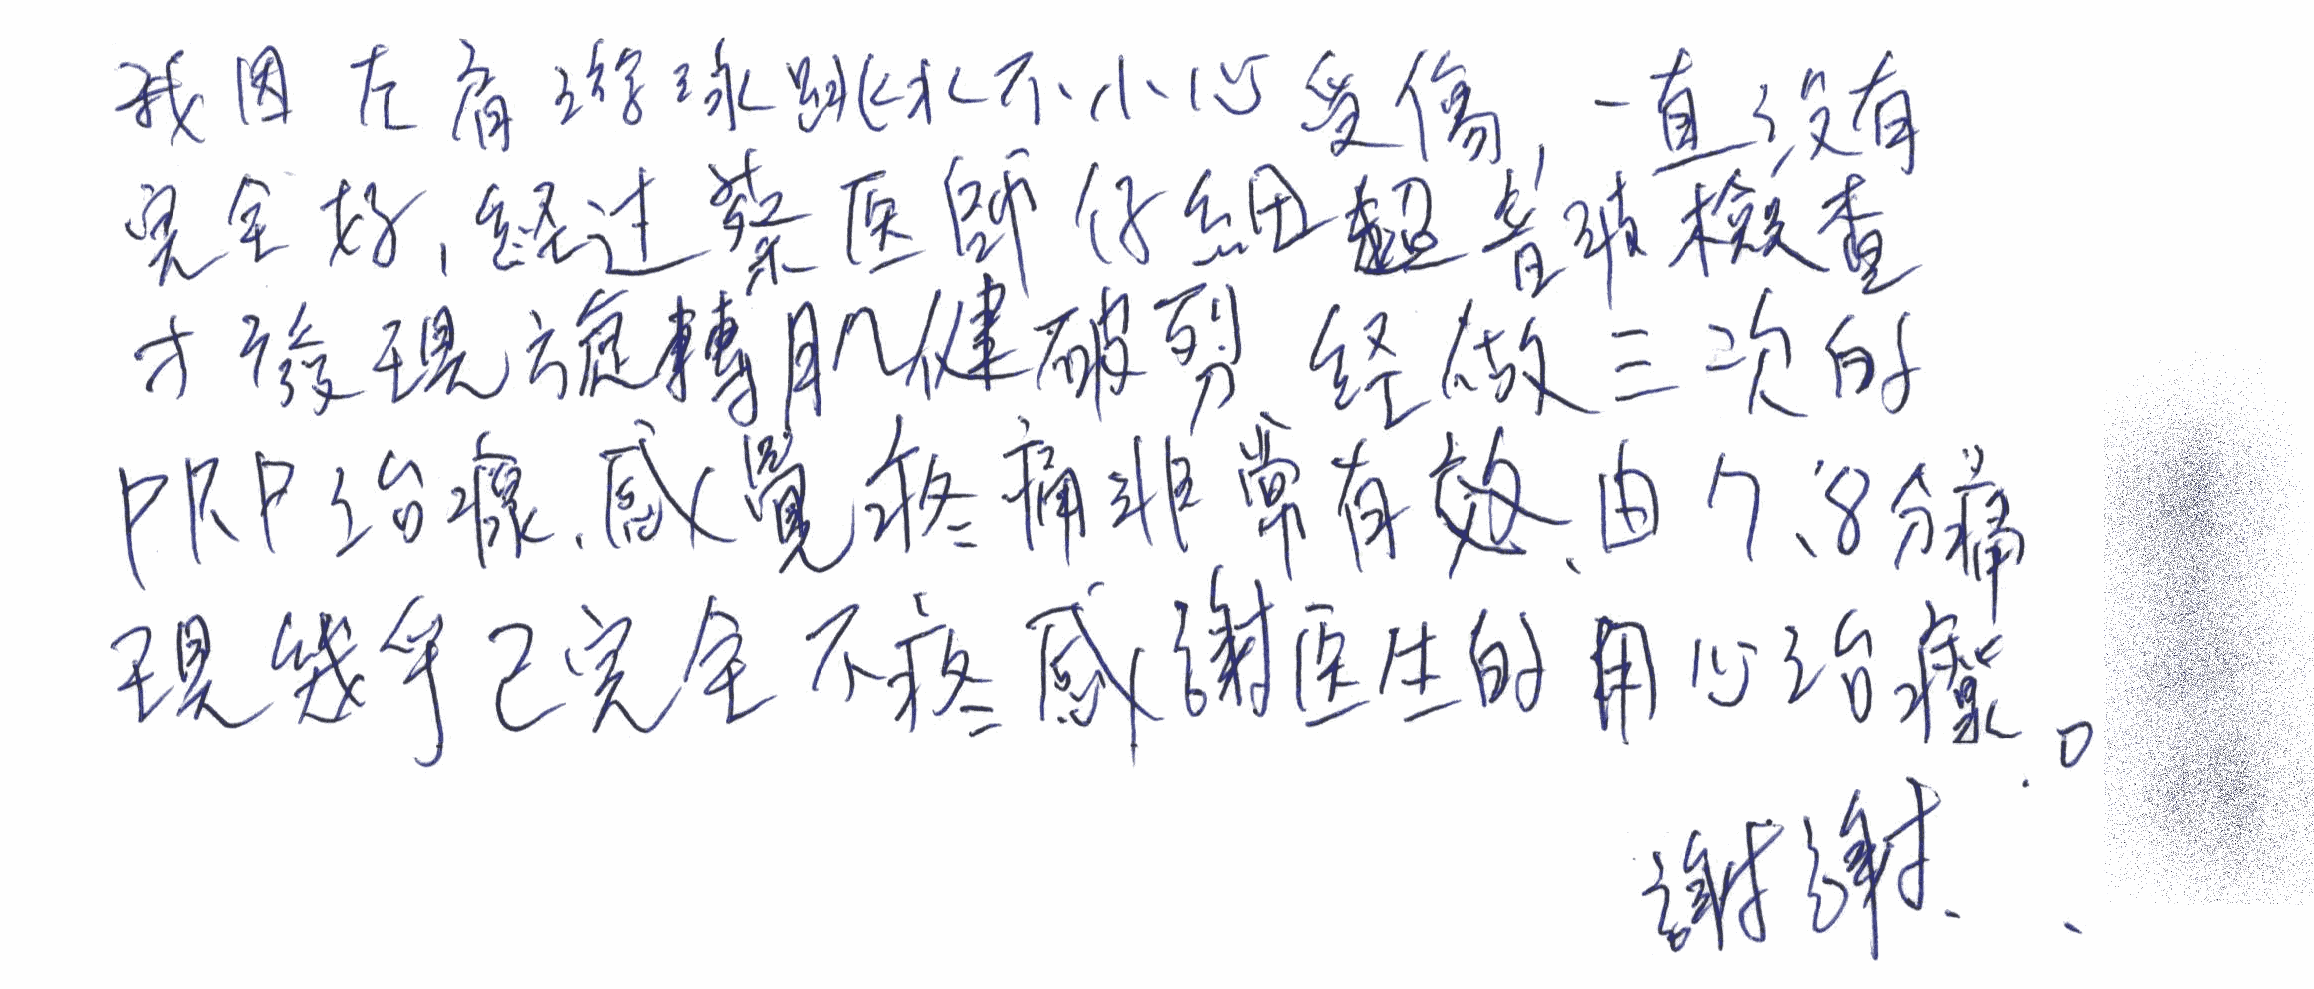 我因左肩游泳跳水不小心受傷,一直沒有
完全好,經过蔡医師仔細超音波檢查
才發現旋轉肌健破裂 経做三次的
PRP治療.感覺疼痛非常有效、由7、8分痛
現幾乎已完全不疼感謝医生的用心治療.。
謝謝、、